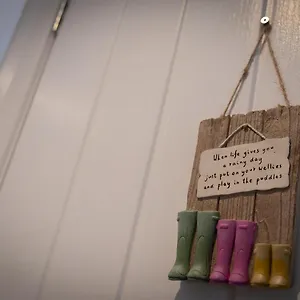 When life gives you
a rainy day
just put on your wellies
and play in the puddles